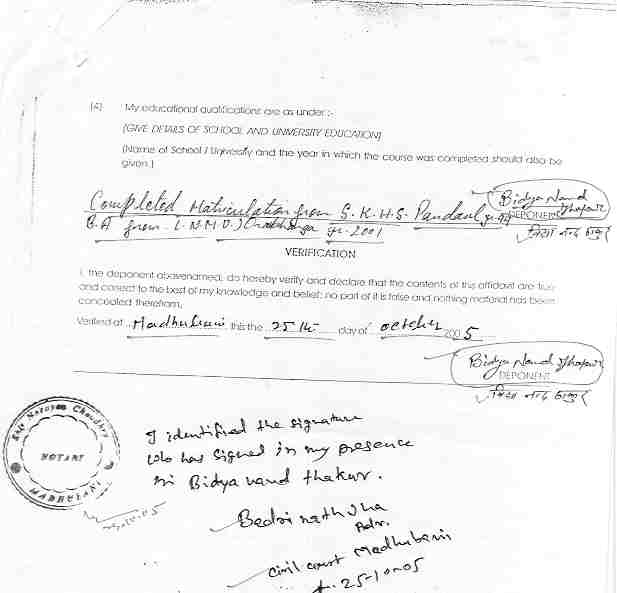 (4) My educational qualifications are as under :-
(GIVE DETAILS OF SCHOOL AND UNIVERSITY EDUCATION)
(Name of School / University and the year in which the course was completed should also be
given.)
Completed Matriculation from S.K.H.S. Pandaul
B.A from L.N.M.U. yr-2001
Bidya Nand Thakur
DEPONENT
VERIFICATION
I, the deponent abovenamed, do hereby verify and declare that the contents of this affidavit are true
and correct to the best of my knowledge and belief; no part of it is false and nothing material has been
concealed therefrom.
Verified at Madhubani this the 25 th day of october 2005
Bidya Nand Thakur
DEPONENT
Narayan Choudhry
NOTARY
MADHUBANI
I identified the signature
who has signed in my presence
Bidya nand thakur.
Badri nath Jha
Adv.
Civil court Madhubani
25-10-05